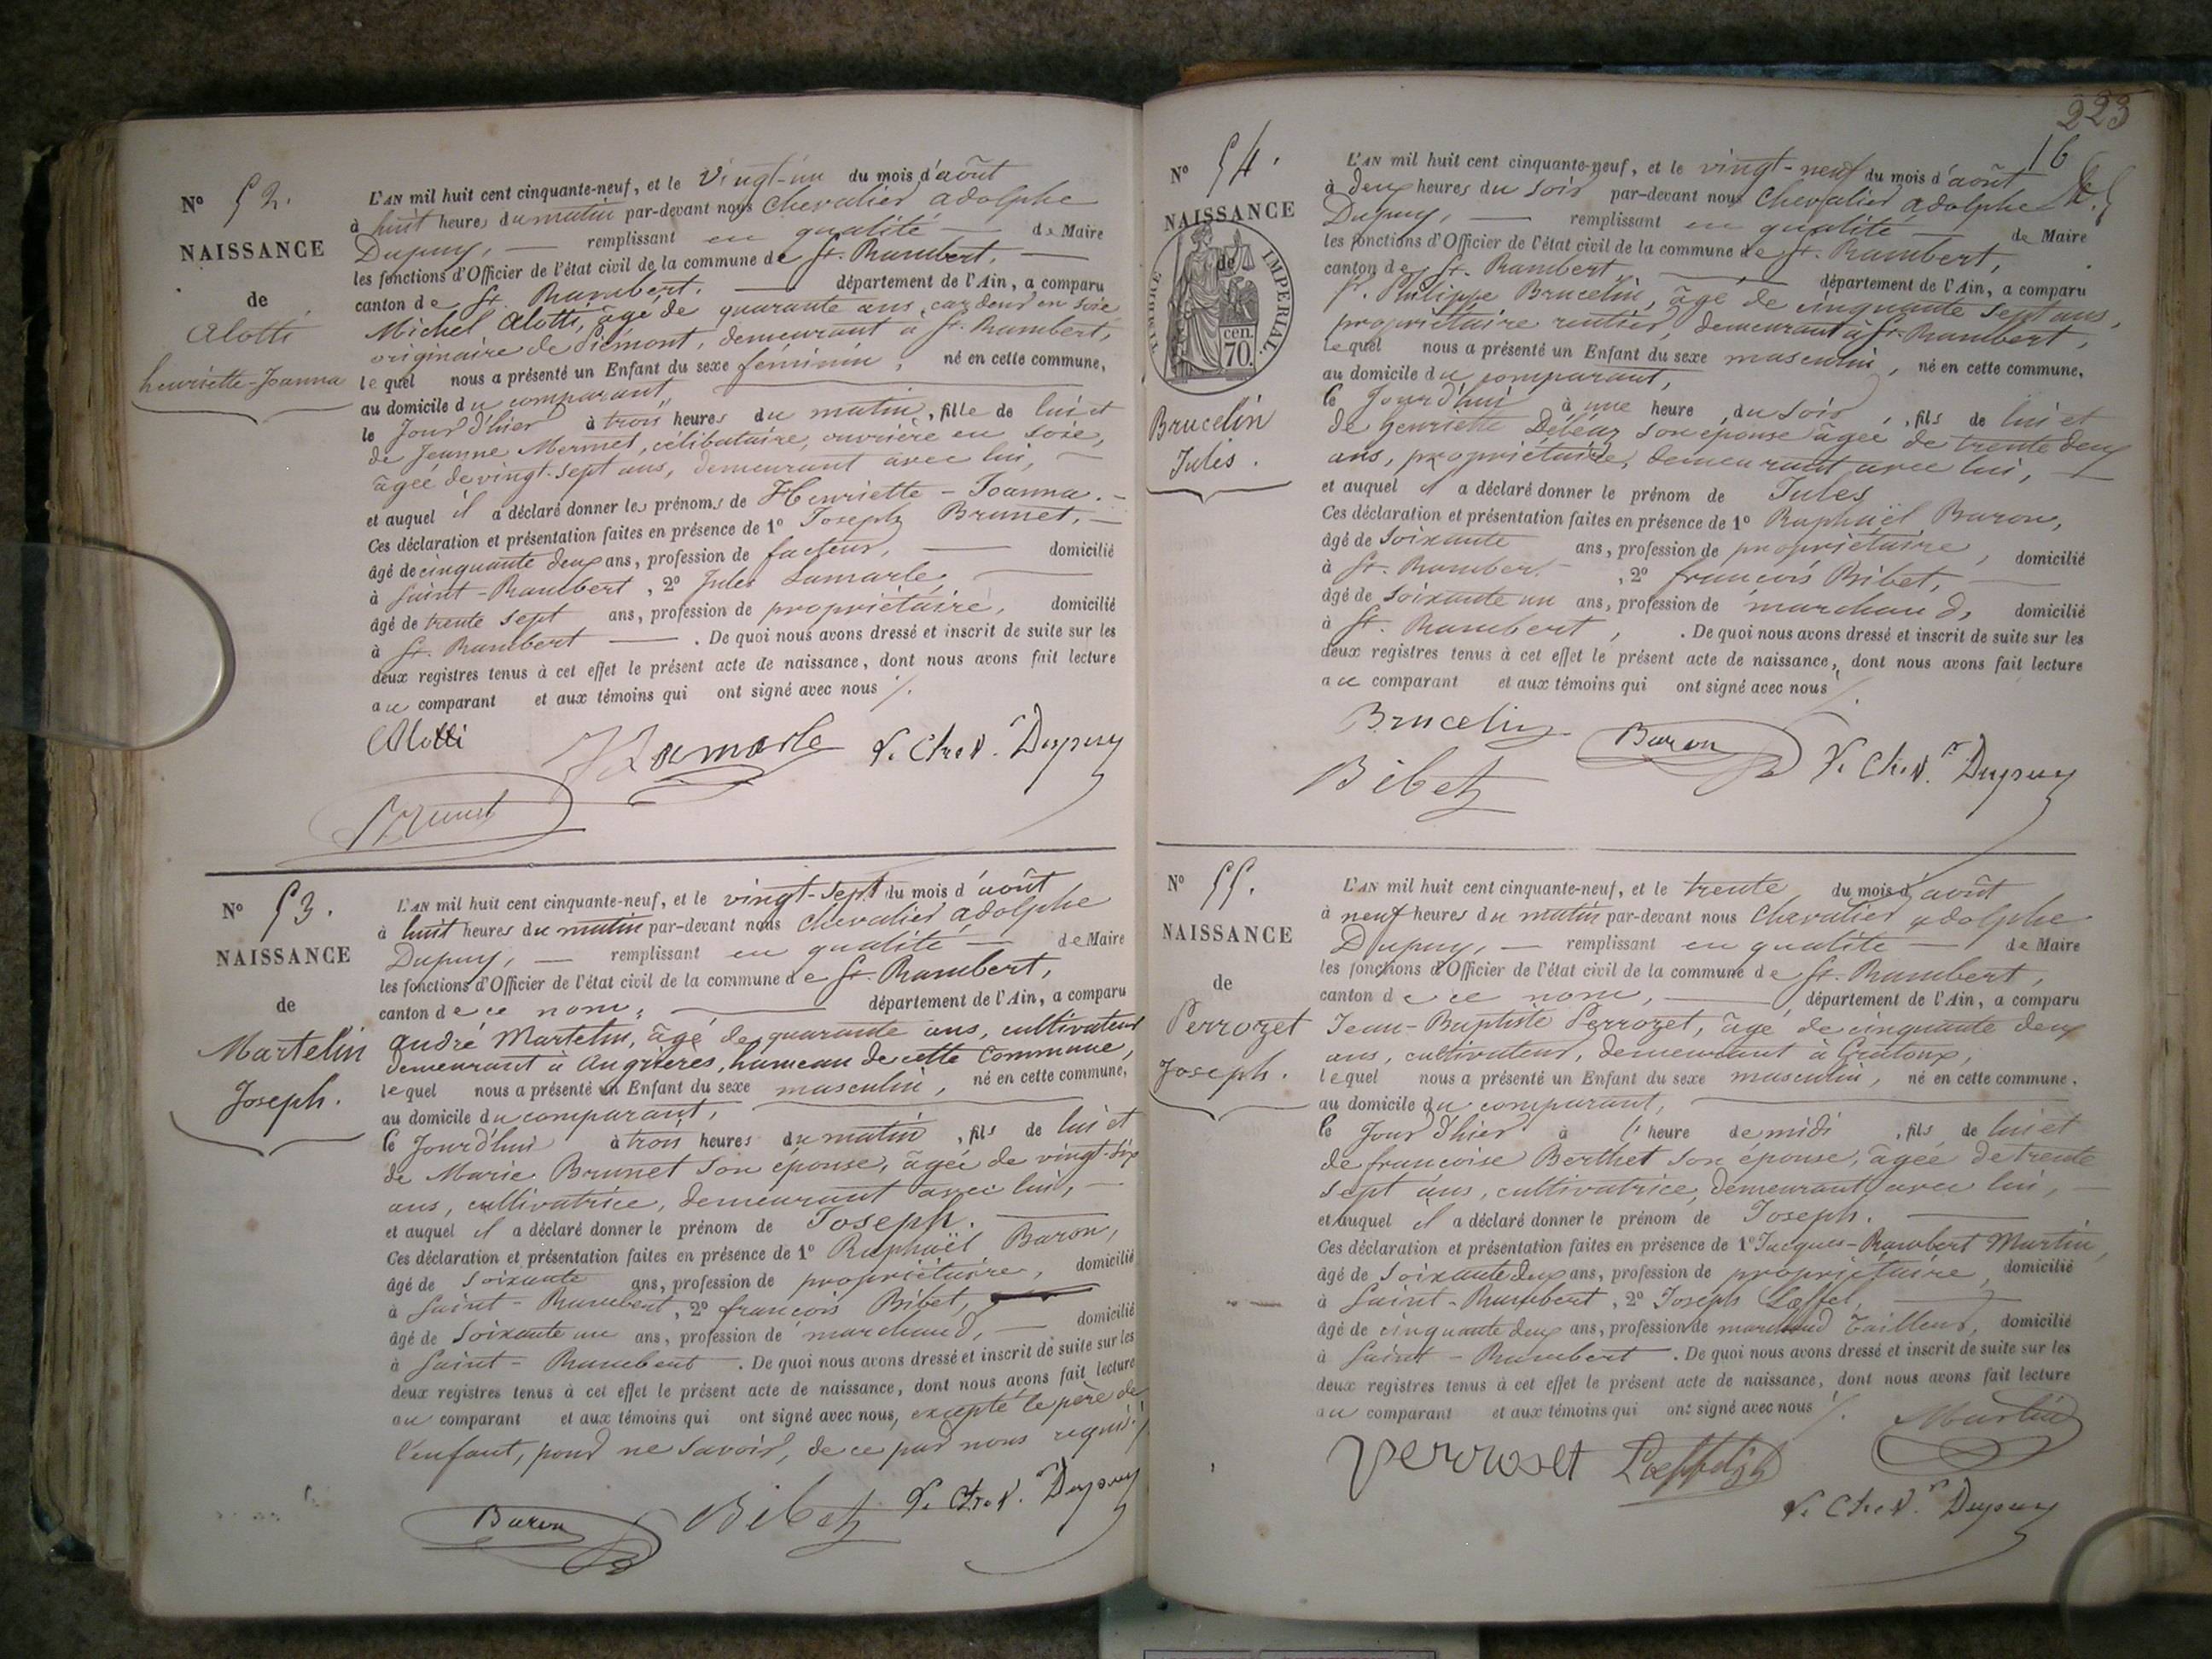 N° 52.
NAISSANCE
de
Alotti
henriette-Joanna
L'AN mil huit cent cinquante-neuf, et le vingt-un du mois d'août
à huit heures du matin par-devant nous Chevalier adolphe
Dupuy, — remplissant en qualité — de Maire
les fonctions d'Officier de l'état civil de la commune de St. Rambert, —
canton de St. Rambert. — département de l'Ain, a comparu
Michel Alotti, âgé de quarante ans, cardeur en soie
originaire de Piémont, demeurant à St. Rambert,
lequel nous a présenté un Enfant du sexe féminin, né en cette commune,
au domicile du comparant,
le Jour d'hier à trois heures du matin, fille de lui et
de Jeanne Mermet, célibataire, ouvrière en soie,
âgée de vingt-sept ans, demeurant avec lui, —
et auquel il a déclaré donner les prénoms de Henriette - Joanna. -
Ces déclaration et présentation faites en présence de 1° Joseph Brunet, —
âgé de cinquante deux ans, profession de facteur, — domicilié
à Saint-Rambert, 2° Jules Lamarle, —
âgé de trente sept ans, profession de propriétaire, domicilié
à St. Rambert — . De quoi nous avons dressé et inscrit de suite sur les
deux registres tenus à cet effet le présent acte de naissance, dont nous avons fait lecture
au comparant et aux témoins qui ont signé avec nous /.
Alotti
Lamarle Chev. Dupuy
Brunet
N° 53.
NAISSANCE
de
Martelin
Joseph.
L'AN mil huit cent cinquante-neuf, et le vingt-sept du mois d'août
à huit heures du matin par-devant nous Chevalier adolphe
Dupuy, — remplissant en qualité — de Maire
les fonctions d'Officier de l'état civil de la commune de St. Rambert,
canton de ce nom, — département de l'Ain, a comparu
André Martelin, âgé de quarante ans, cultivateur
demeurant à Angrières, hameau de cette Commune,
lequel nous a présenté un Enfant du sexe masculin, né en cette commune,
au domicile du comparant, —
le Jourd'hui à trois heures du matin, fils de lui et
de Marie Brunet son épouse, âgée de vingt-six
ans, cultivatrice, demeurant avec lui, —
et auquel il a déclaré donner le prénom de Joseph. —
Ces déclaration et présentation faites en présence de 1° Raphaël Baron,
âgé de soixante ans, profession de propriétaire, domicilié
à Saint-Rambert, 2° françois Bibet,
âgé de soixante un ans, profession de marchand, — domicilié
à Saint-Rambert . De quoi nous avons dressé et inscrit de suite sur les
deux registres tenus à cet effet le présent acte de naissance, dont nous avons fait lecture
au comparant et aux témoins qui ont signé avec nous, excepté le père de
l'enfant, pour ne savoir, de ce par nous requis /.
Baron Bibet Chev. Dupuy
223
16
N° 54.
NAISSANCE
de
TIMBRE IMPERIAL.
cen.
70.
Brucelin
Jules.
L'AN mil huit cent cinquante-neuf, et le vingt-neuf du mois d'août
à deux heures du soir par-devant nous Chevalier adolphe
Dupuy, — remplissant en qualité — de Maire
les fonctions d'Officier de l'état civil de la commune de St. Rambert,
canton de St. Rambert, — département de l'Ain, a comparu
Philippe Brucelin, âgé de cinquante sept ans,
propriétaire rentier, demeurant à St. Rambert,
lequel nous a présenté un Enfant du sexe masculin, né en cette commune,
au domicile du comparant,
le Jourd'hui à une heure du soir, fils de lui et
de henriette son épouse âgée de trente deux
ans, propriétaire, demeurant avec lui, —
et auquel il a déclaré donner le prénom de Jules
Ces déclaration et présentation faites en présence de 1° Raphaël Baron,
âgé de soixante ans, profession de propriétaire, domicilié
à St. Rambert, 2° françois Bibet, —
âgé de soixante un ans, profession de marchand, domicilié
à St. Rambert, . De quoi nous avons dressé et inscrit de suite sur les
deux registres tenus à cet effet le présent acte de naissance, dont nous avons fait lecture
au comparant et aux témoins qui ont signé avec nous /.
Brucelin Baron
Bibet Chev.r Dupuy
N° 55.
NAISSANCE
de
Perrozet
Joseph.
L'AN mil huit cent cinquante-neuf, et le trente du mois d'août
à neuf heures du matin par-devant nous Chevalier adolphe
Dupuy, — remplissant en qualité — de Maire
les fonctions d'Officier de l'état civil de la commune de St. Rambert,
canton de ce nom, — département de l'Ain, a comparu
Jean-Baptiste Perrozet, âgé de cinquante deux
ans, cultivateur, demeurant à Gratoux,
lequel nous a présenté un Enfant du sexe masculin, né en cette commune.
au domicile du comparant, —
le Jour d'hier à l'heure de midi, fils de lui et
de francoise Berthet son épouse, âgée de trente
sept ans, cultivatrice, demeurant avec lui, —
et auquel il a déclaré donner le prénom de Joseph. —
Ces déclaration et présentation faites en présence de 1° Jacques-Rambert Martin,
âgé de soixante deux ans, profession de propriétaire, domicilié
à Saint-Rambert, 2° Joseph Lœffel, —
âgé de cinquante deux ans, profession de marchand tailleur, domicilié
à Saint-Rambert . De quoi nous avons dressé et inscrit de suite sur les
deux registres tenus à cet effet le présent acte de naissance, dont nous avons fait lecture
au comparant et aux témoins qui ont signé avec nous /.
Martin
Perroset Lœffel
Chev.r Dupuy